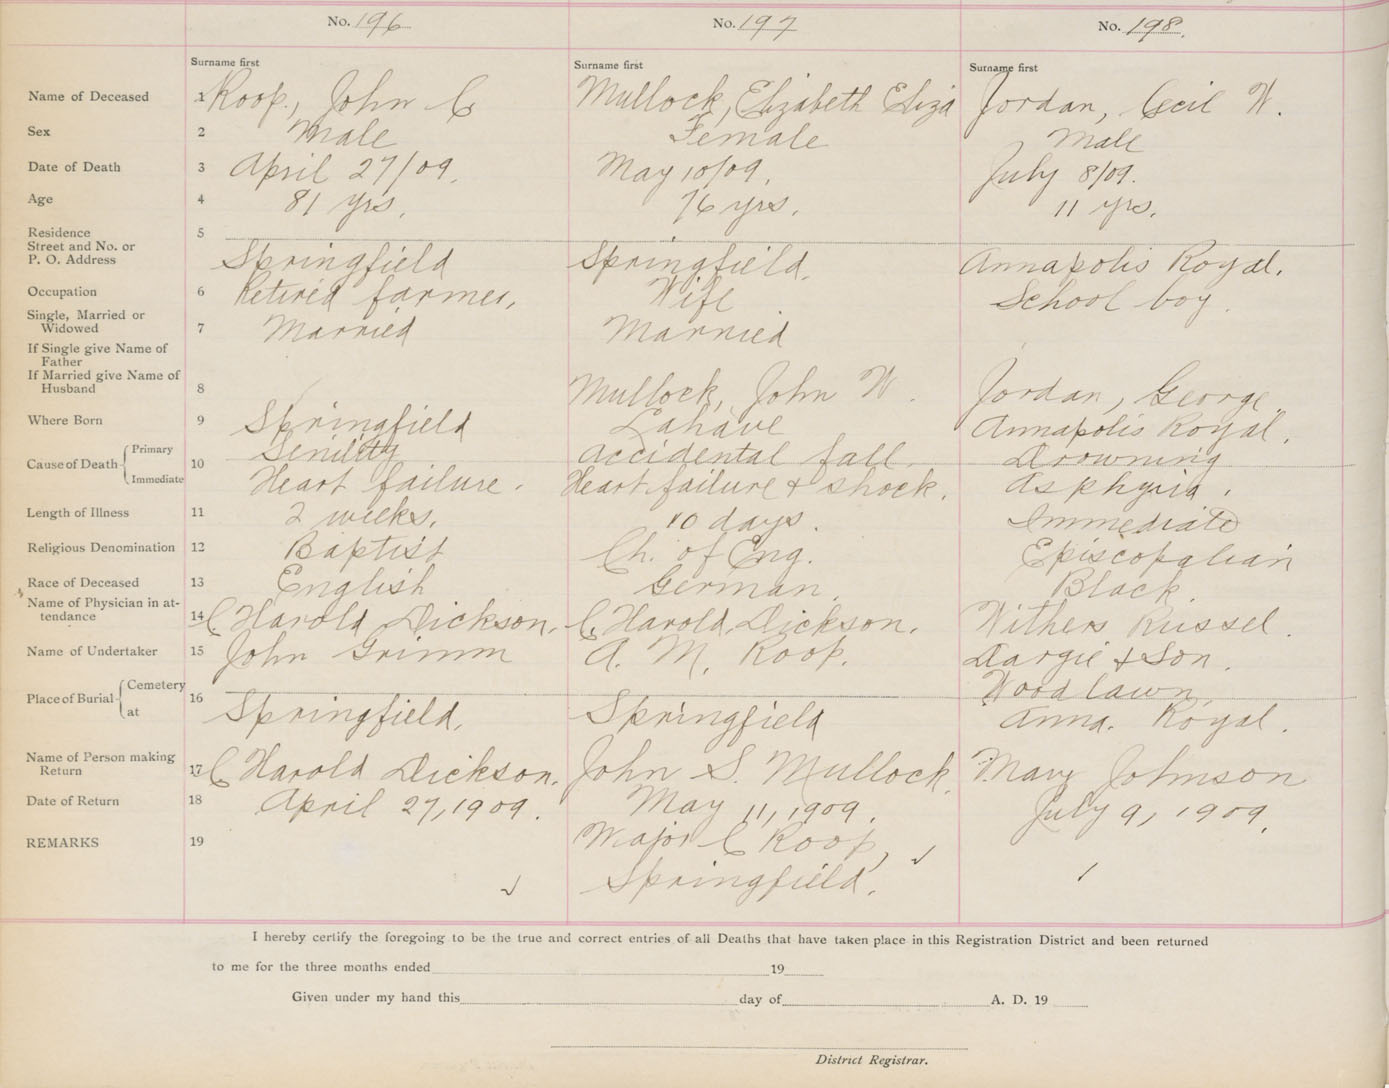 No. 196 No. 197 No. 198.
Surname first Surname first Surname first
Name of Deceased 1 Roop, John C Mullock, Elizabeth Eliza Jordan, Cecil W.
Sex 2 Male Female Male
Date of Death 3 April 27/09. May 10/09. July 8/09.
Age 4 81 yrs. 76 yrs. 11 yrs.
Residence 5
Street and No. or
P. O. Address Springfield Springfield. Annapolis Royal.
Occupation 6 Retired farmer, Wife School boy.
Single, Married or
Widowed 7 Married Married
If Single give Name of
Father
If Married give Name of
Husband 8 Mullock, John W. Jordan, George
Where Born 9 Springfield Lahave Annapolis Royal.
Cause of Death Primary 10 Senility Accidental fall. Drowning
Immediate Heart failure. Heart failure & shock. Asphyxia.
Length of Illness 11 2 weeks. 10 days. Immediate
Religious Denomination 12 Baptist Ch. of Eng. Episcopalian
Race of Deceased 13 English German. Black.
Name of Physician in at-
tendance 14 C. Harold Dickson. C. Harold Dickson. Withers Russel.
Name of Undertaker 15 John Grimm A. M. Roop. Dargie & Son.
Place of Burial Cemetery 16 Woodlawn
at Springfield. Springfield Anna. Royal.
Name of Person making
Return 17 C Harold Dickson. John S. Mullock. Mary Johnson
Date of Return 18 April 27, 1909. May 11, 1909. July 9, 1909.
REMARKS 19 Major C Roop,
Springfield.
I hereby certify the foregoing to be the true and correct entries of all Deaths that have taken place in this Registration District and been returned
to me for the three months ended 19
Given under my hand this day of A. D. 19
District Registrar.